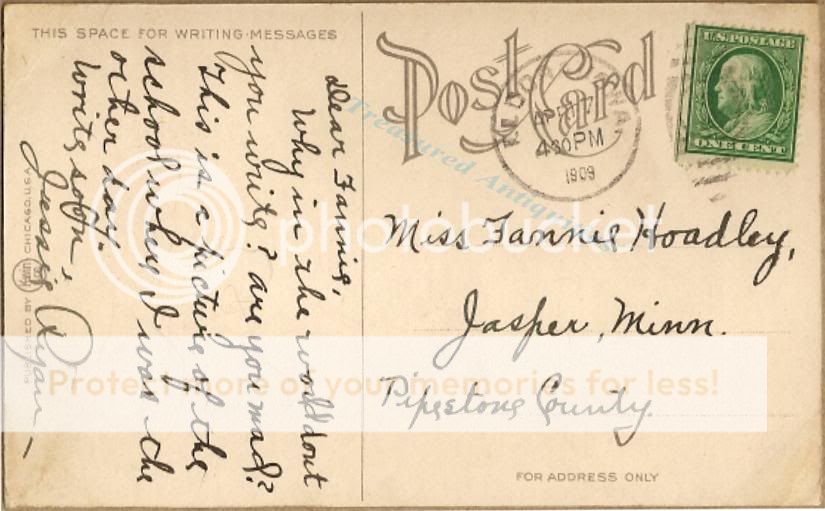 THIS SPACE FOR WRITING MESSAGES
Dear Fannie,
Why in the world dont
you write? are you mad?
This is a picture of the
school where I was the
other day.
Write soon,
Jessie Ryan
CHICAGO, U.S.A.
Post Card
4 30 PM
1909
U.S. POSTAGE
ONE CENT
Miss Fannie Hoadley,
Jasper, Minn.
Pipestone County.
FOR ADDRESS ONLY
Treasured Antiques
photobucket
Protect more of your memories for less!